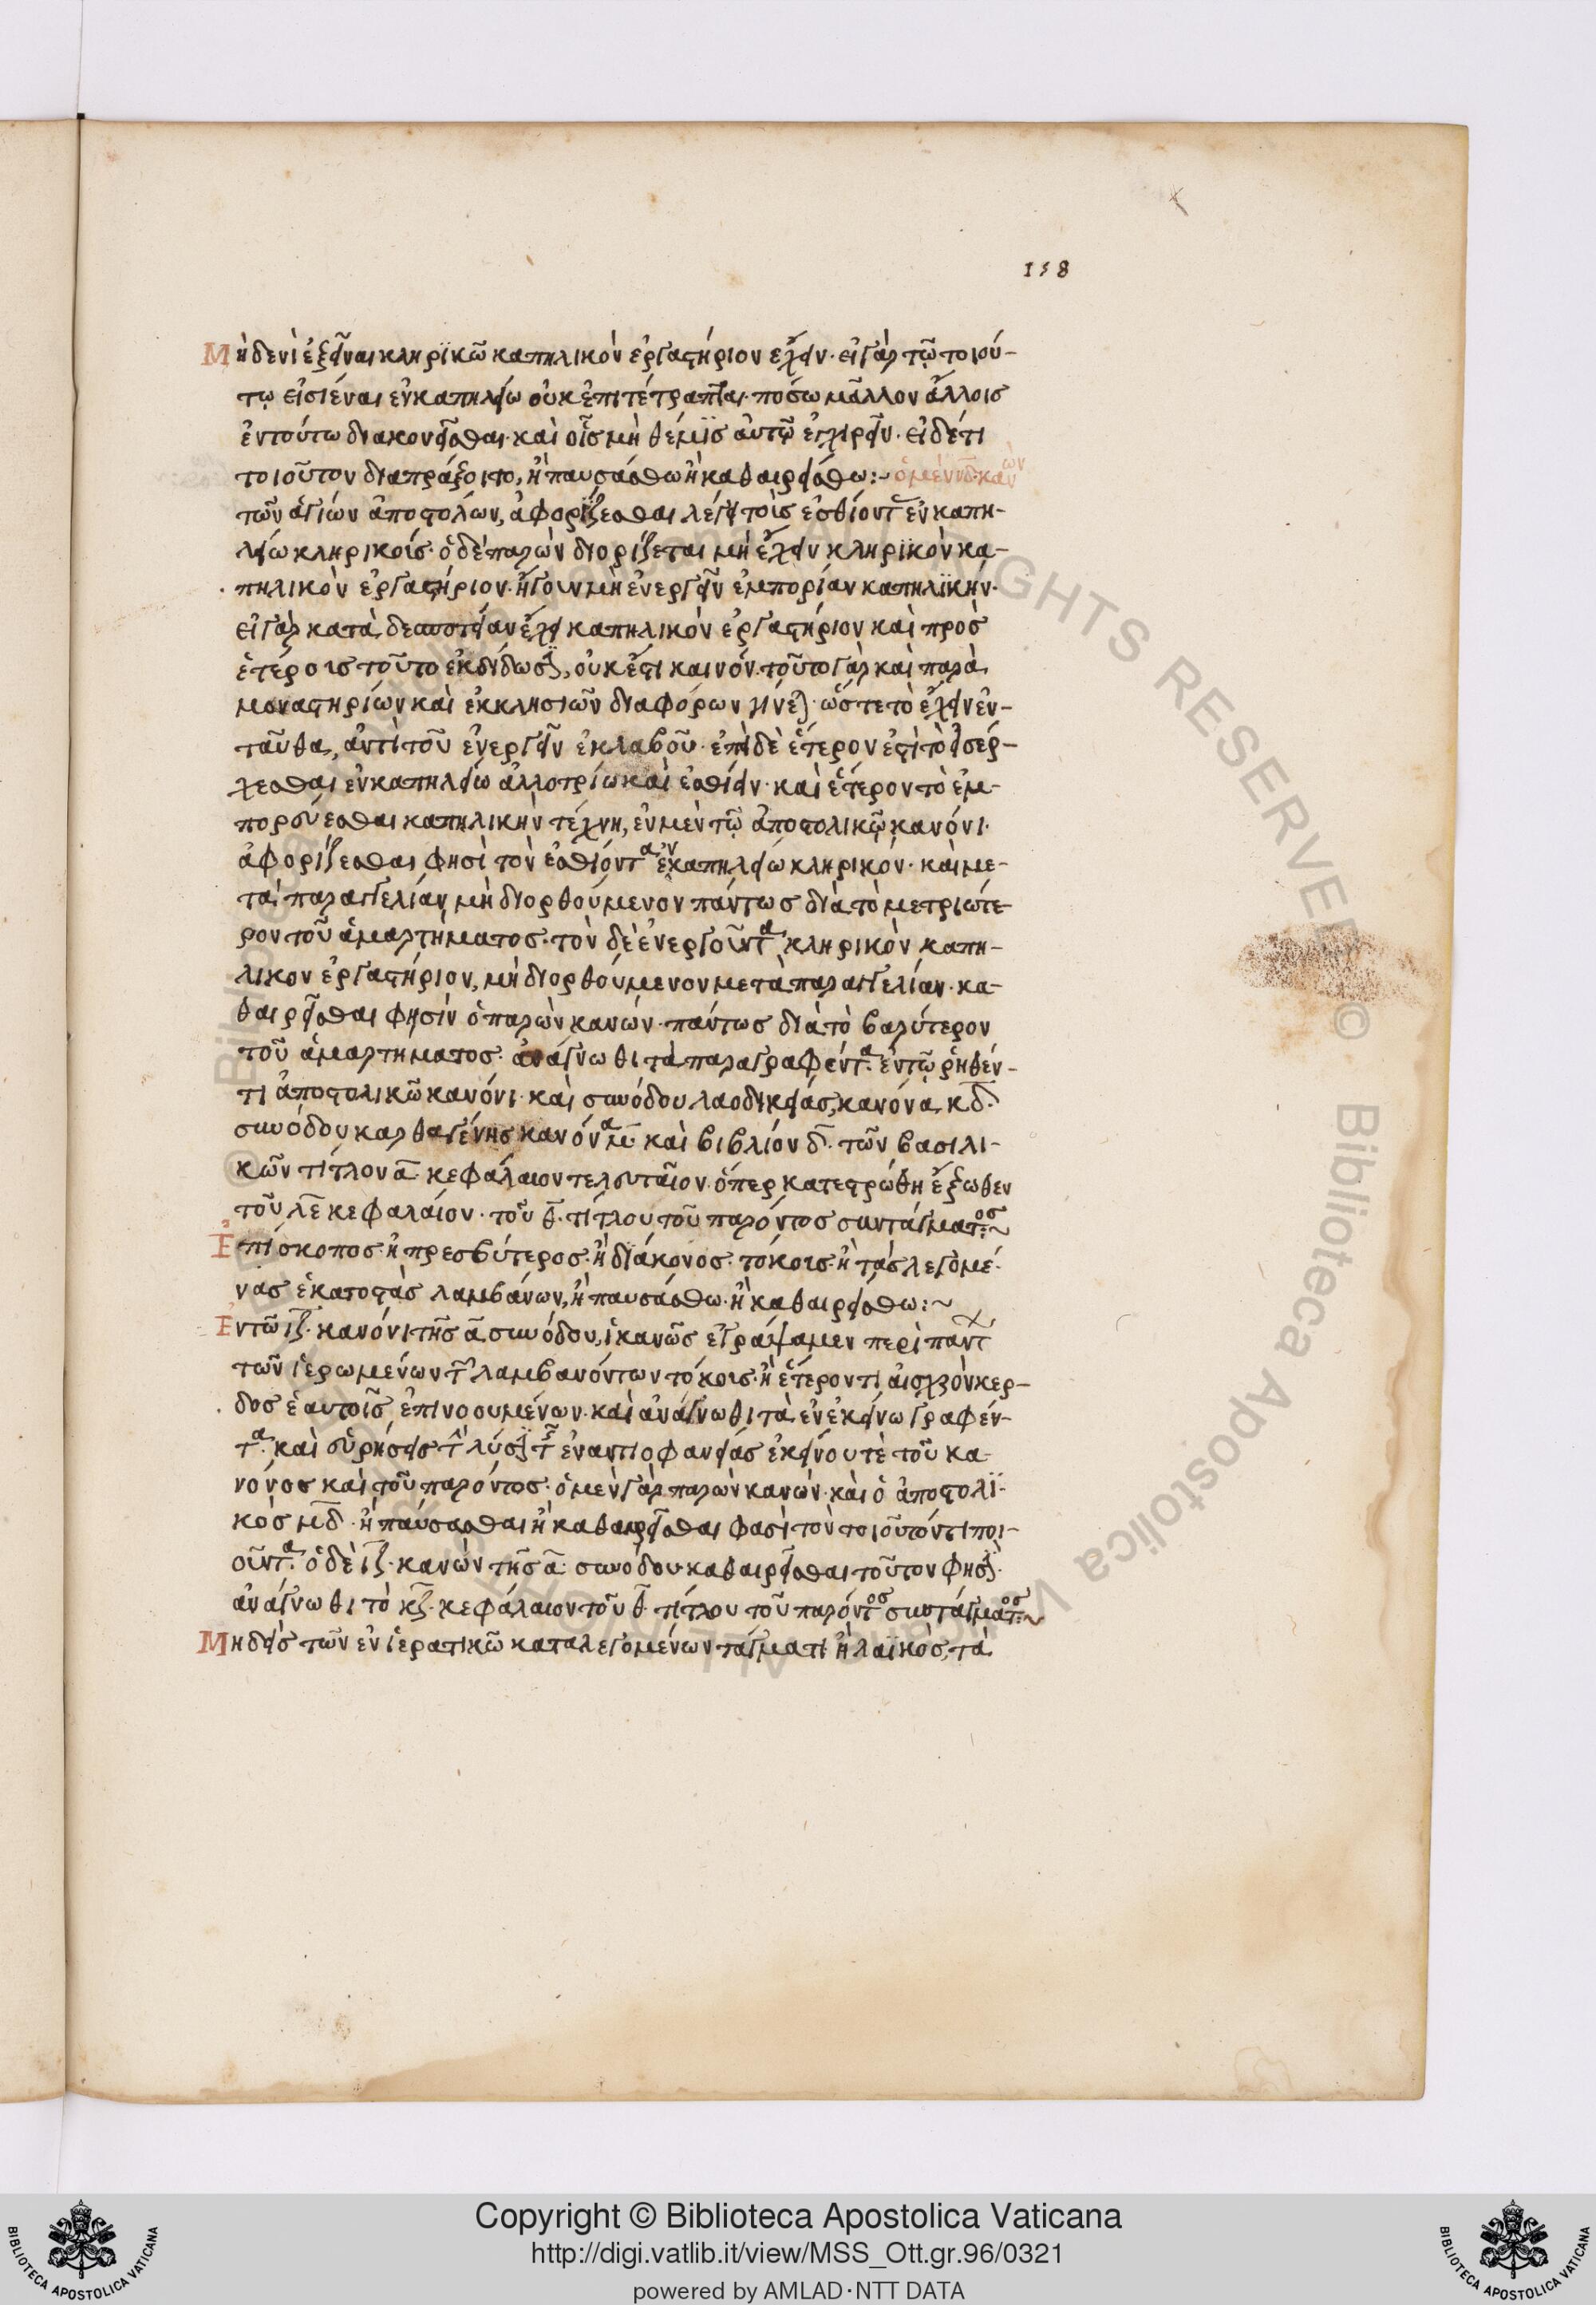 158
Μηδενὶ ἐξεῖναι κληρϊκῶ καπηλικὸν ἐργαστήριον ἔχειν· εἰ γὰρ τῶ τοιού-
τῳ εἰσιέναι ἐν καπηλείω οὐκ ἐπιτέτραπται· πόσω μᾶλλον ἄλλοις
ἐν τούτω διακονεῖσθαι· καὶ οἷς μὴ θέμϊς αὐτῶ ἐγχειρεῖν. εἰ δέ τι
τοιοῦτον διαπράξοιτο, ἢ παυσάσθω ἢ καθαιρείσθω:~ ὁ μὲν νδ καν ων
τῶν ἁγίων ἀποστόλων, ἀφορίζεσθαι λέγει τοῖς ἐσθίοντ ἐν καπη-
λείω κληρικοίς· ὁ δὲ παρὼν διορίζεται μὴ ἔχειν κληρϊκὸν κα-
πηλικὸν ἐργαστήριον· ἤγουν μὴ ἐνεργεῖν ἐμπορίαν καπηλϊκήν·
εἰ γὰρ κατὰ δεσποτείαν ἔχει καπηλικὸν ἐργαστήριον καὶ πρὸς
ἑτέροις τοῦτο ἐκδίδωσι, οὐκ ἔστι καινόν· τοῦτο γὰρ καὶ παρὰ
μοναστηρίων καὶ ἐκκλησιῶν διαφόρων γίνεται· ὥστε τὸ ἔχειν ἐν-
ταῦθα, ἀντὶ τοῦ ἐνεργεῖν ἐκλαβοῦ· ἐπεὶ δὲ ἕτερον ἐστὶ τὸ εἰσέρ-
χεσθαι ἐν καπηλείω ἀλλοτρίω καὶ ἐσθίειν· καὶ ἕτερον τὸ ἐμ-
πορεύεσθαι καπηλικὴν τέχνη, ἐν μὲν τῶ ἀποστολικῶ κανόνι·
ἀφορίζεσθαι φησὶ τὸν ἐσθίοντα ἐν καπηλείω κληρικόν· καὶ με-
τὰ παραγγελίαν μὴ διορθούμενον πάντως διὰ τὸ μετριώτε-
ρον τοῦ ἁμαρτήματος· τὸν δὲ ἐνεργοῦντα κληρικὸν καπη-
λικον ἐργαστήριον, μὴ διορθούμενον μετὰ παραγγελίαν· κα-
θαιρεῖσθαι φησὶν ὁ παρὼν κανών· πάντως διὰ τὸ βαρύτερον
τοῦ ἁμαρτηματος· ἀνάγνωθι τὰ παραγραφέντα ἐν τῶ ῥηθέν-
τι ἀποστολικῶ κανόνι· καὶ συνόδου λαοδικείας, κανόνα κδ·
συνόδου καρθαγένης κανόνα μ καὶ βιβλίον δ· τῶν βασιλι-
κῶν τίτλον α· κεφάλαιον τελευταῖον· ὅπερ κατεστρώθη ἔξωθεν
τοῦ λε κεφαλαίον· τοῦ θ· τίτλου τοῦ παρόντος συντάγματος~
Ἐπίσκοπος· ἢ πρεσβύτερος· ἢ διάκονος· τόκοις· ἢ τὰς λεγομέ-
νας ἑκατοστὰς λαμβάνων, ἢ παυσάσθω· ἢ καθαιρείσθω:~
Ἐν τῶ ιζ· κανόνι τῆς α συνόδου, ἱκανῶς ἐγράψαμεν περὶ παντ
τῶν ἱερωμένων τ λαμβανόντων τόκοις· ἢ ἕτερον τι αἰσχρὸν κερ-
δος ἑαυτοῖς ἐπινοουμένων· καὶ ἀνάγνωθι τὰ ἐν ἐκείνω γραφέν-
τα· καὶ εὑρήσεις τ λύσιν τ ἐναντιοφανείας ἐκείνου τὲ τοῦ κα-
νόνος καὶ τοῦ παρόντος· ὁ μὲν γὰρ παρὼν κανών· καὶ ὁ ἀποστολϊ-
κὸς μδ· ἢ παύσασθαι ἢ καθαιρεῖσθαι φασὶ τὸν τοιοῦτόν τι ποι-
οῦντα· ὁ δὲ ιζ· κανὼν τῆς α· συνόδου· καθαιρεῖσθαι τοῦτον φησὶ·
ἀνάγνωθι τὸ κζ· κεφάλαιον τοῦ θ· τίτλου τοῦ παρόντος συντάγματος~
Μηδεὶς τῶν ἐν ἱερατικῶ καταλεγομένων τάγματι ἢ λαϊκὸς, τὰ
Copyright © Biblioteca Apostolica Vaticana
http://digi.vatlib.it/view/MSS_Ott.gr.96/0321
powered by AMLAD·NTT DATA